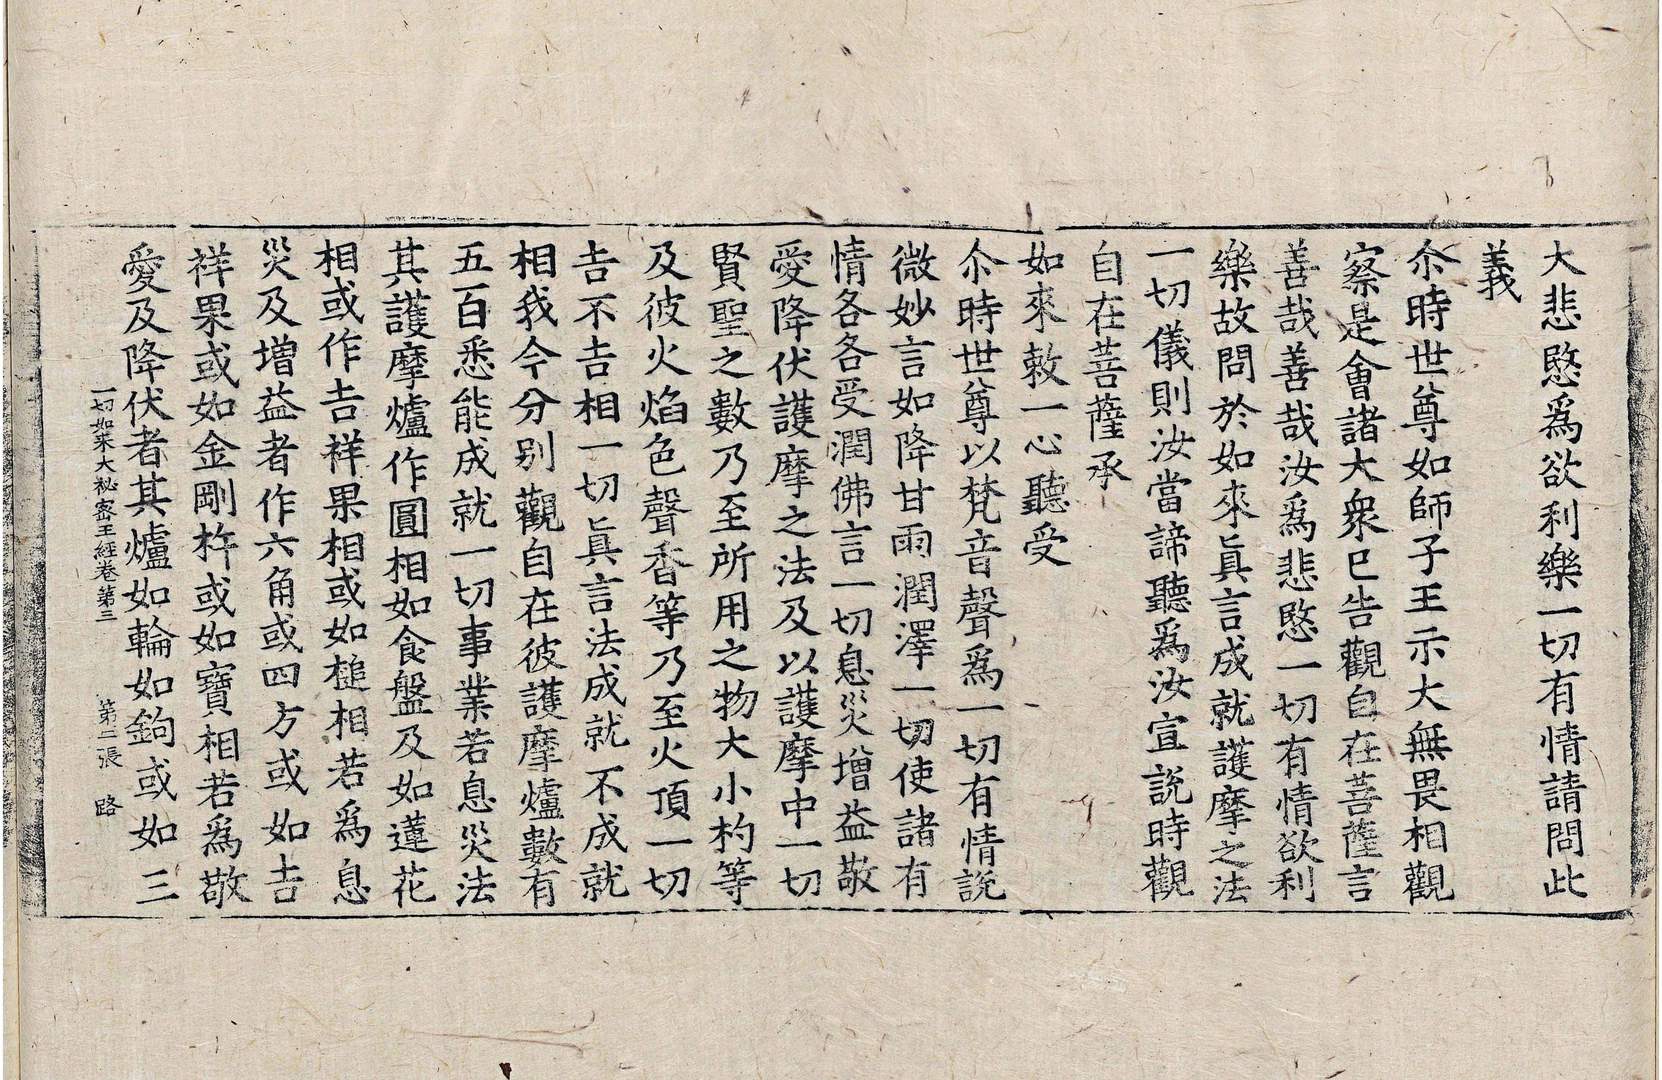 大悲愍爲欲利樂一切有情請問此
義
尒時世尊如師子王示大無畏相觀
察是會諸大衆已告觀自在菩薩言
善哉善哉汝爲悲愍一切有情欲利
樂故問於如來眞言成就護摩之法
一切儀則汝當諦聽爲汝宣說時觀
自在菩薩承
如來敕一心聽受
尒時世尊以梵音聲爲一切有情說
微妙言如降甘雨潤澤一切使諸有
情各各受潤佛言一切息災增益敬
愛降伏護摩之法及以護摩中一切
賢聖之數乃至所用之物大小杓等
及彼火焰色聲香等乃至火頂一切
吉不吉相一切眞言法成就不成就
相我今分別觀自在彼護摩爐數有
五百悉能成就一切事業若息災法
其護摩爐作圓相如食盤及如蓮花
相或作吉祥果相或如槌相若爲息
災及增益者作六角或四方或如吉
祥果或如金剛杵或如寶相若爲敬
愛及降伏者其爐如輪如鉤或如三
一切如來大祕密王經卷第三 第二張 路